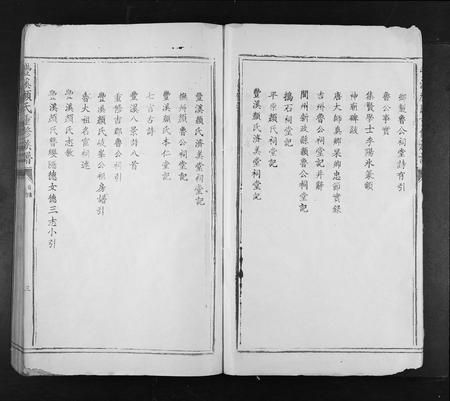 御製魯公祠堂詩有引
魯公事實
集賢學士李陽冰篆額
神廟碑跋
唐大師真卿杲卿忠節實錄
吉州魯公祠堂記并辭
閬州新政縣顏魯公祠堂記
搗石祠堂記
平原顏氏祠堂記
豐溪顏氏濟美堂祠堂記
豐溪顏氏濟美堂祠堂記
撫州顏魯公祠堂記
豐溪顏氏本仁堂記
七言古詩
豐溪八景詩八首
重修吉郡魯公祠引
豐溪顏氏峻峯公祠房譜引
魯大祖名宦祠述
豐溪顏氏志教
豐溪顏氏簪纓隱德女德三志小引
豐溪顏氏重修族譜
三